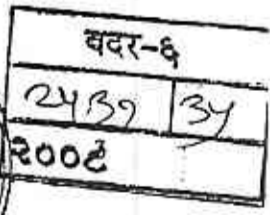 बदर-६
२५३१ ३५
२००९